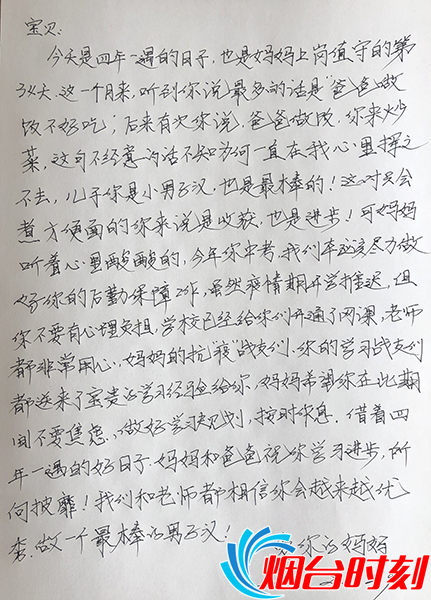 宝贝:
今天是四年一遇的日子,也是妈妈上岗值守的第
34天。这一个月来,听到你说最多的话是“爸爸做
饭不好吃;后来有次你说,爸爸做饭,你来炒
菜,这句不经意的话不知为何一直在我心里挥之
不去,儿子你是小男子汉,也是最棒的!这对只会
煮方便面的你来说是收获,也是进步!可妈妈
听着心里酸酸的,今年你中考,我们本应该尽力做
好你的后勤保障工作,虽然疫情期开学推迟,但
你不要有心理负担,学校已经给你们开通了网课,老师
都非常用心,妈妈的抗“疫”战友们、你的学习战友们
都送来了宝贵的学习经验给你,妈妈希望你在此期
间不要焦虑,做好学习规划,按时作息。借着四
年一遇的好日子,妈妈和爸爸祝你学习进步,所
向披靡!我们和老师都相信你会越来越优
秀,做一个最棒的男子汉!
你的妈妈
烟台时刻